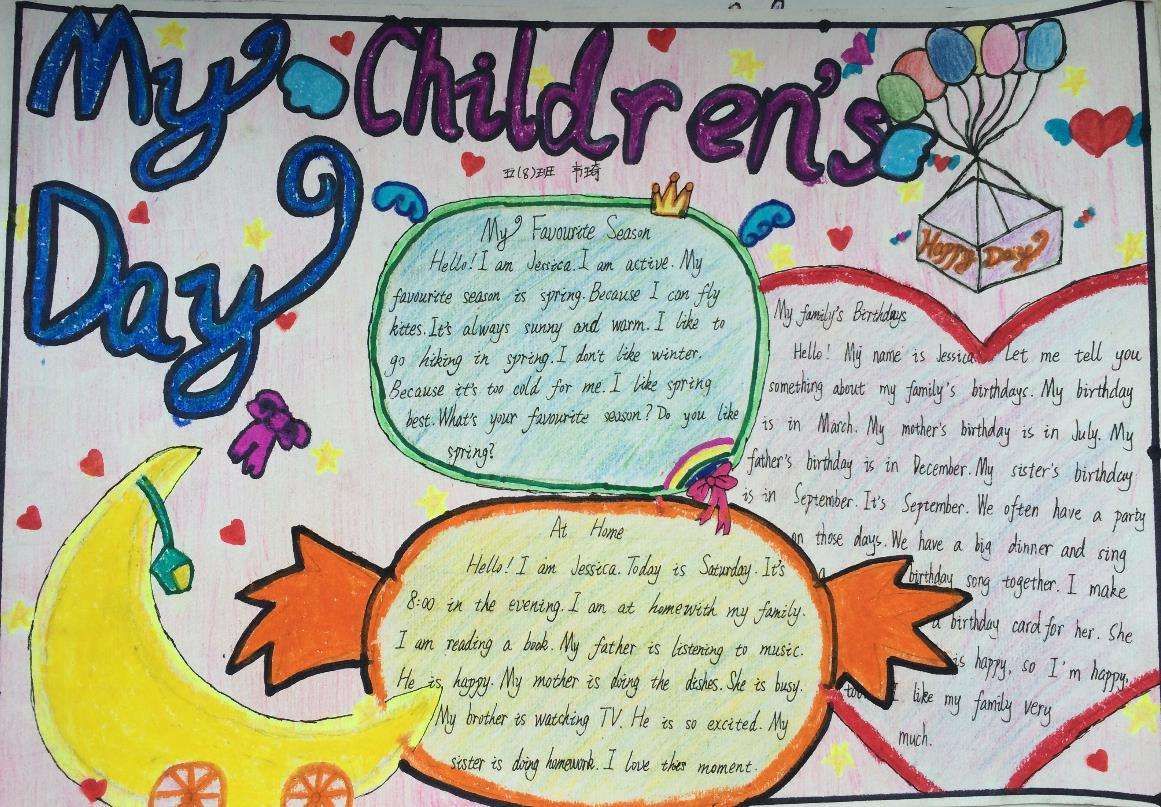 My Children's
Day
五(8)班 韦琦
Happy Day
My Favourite Season
Hello! I am Jessica. I am active. My
favourite season is spring. Because I can fly
kites. It's always sunny and warm. I like to
go hiking in spring. I don't like winter.
Because it's too cold for me. I like spring
best. What's your favourite season? Do you like
spring?
My family's Birthdays
Hello! My name is Jessica. Let me tell you
something about my family's birthdays. My birthday
is in March. My mother's birthday is in July. My
father's birthday is in December. My sister's birthday
is in September. It's September. We often have a party
on those days. We have a big dinner and sing
a birthday song together. I make
a birthday card for her. She
is happy, so I'm happy,
too. I like my family very
much.
At Home
Hello! I am Jessica. Today is Saturday. It's
8:00 in the evening. I am at home with my family.
I am reading a book. My father is listening to music.
He is happy. My mother is doing the dishes. She is busy.
My brother is watching TV. He is so excited. My
sister is doing homework. I love this moment.